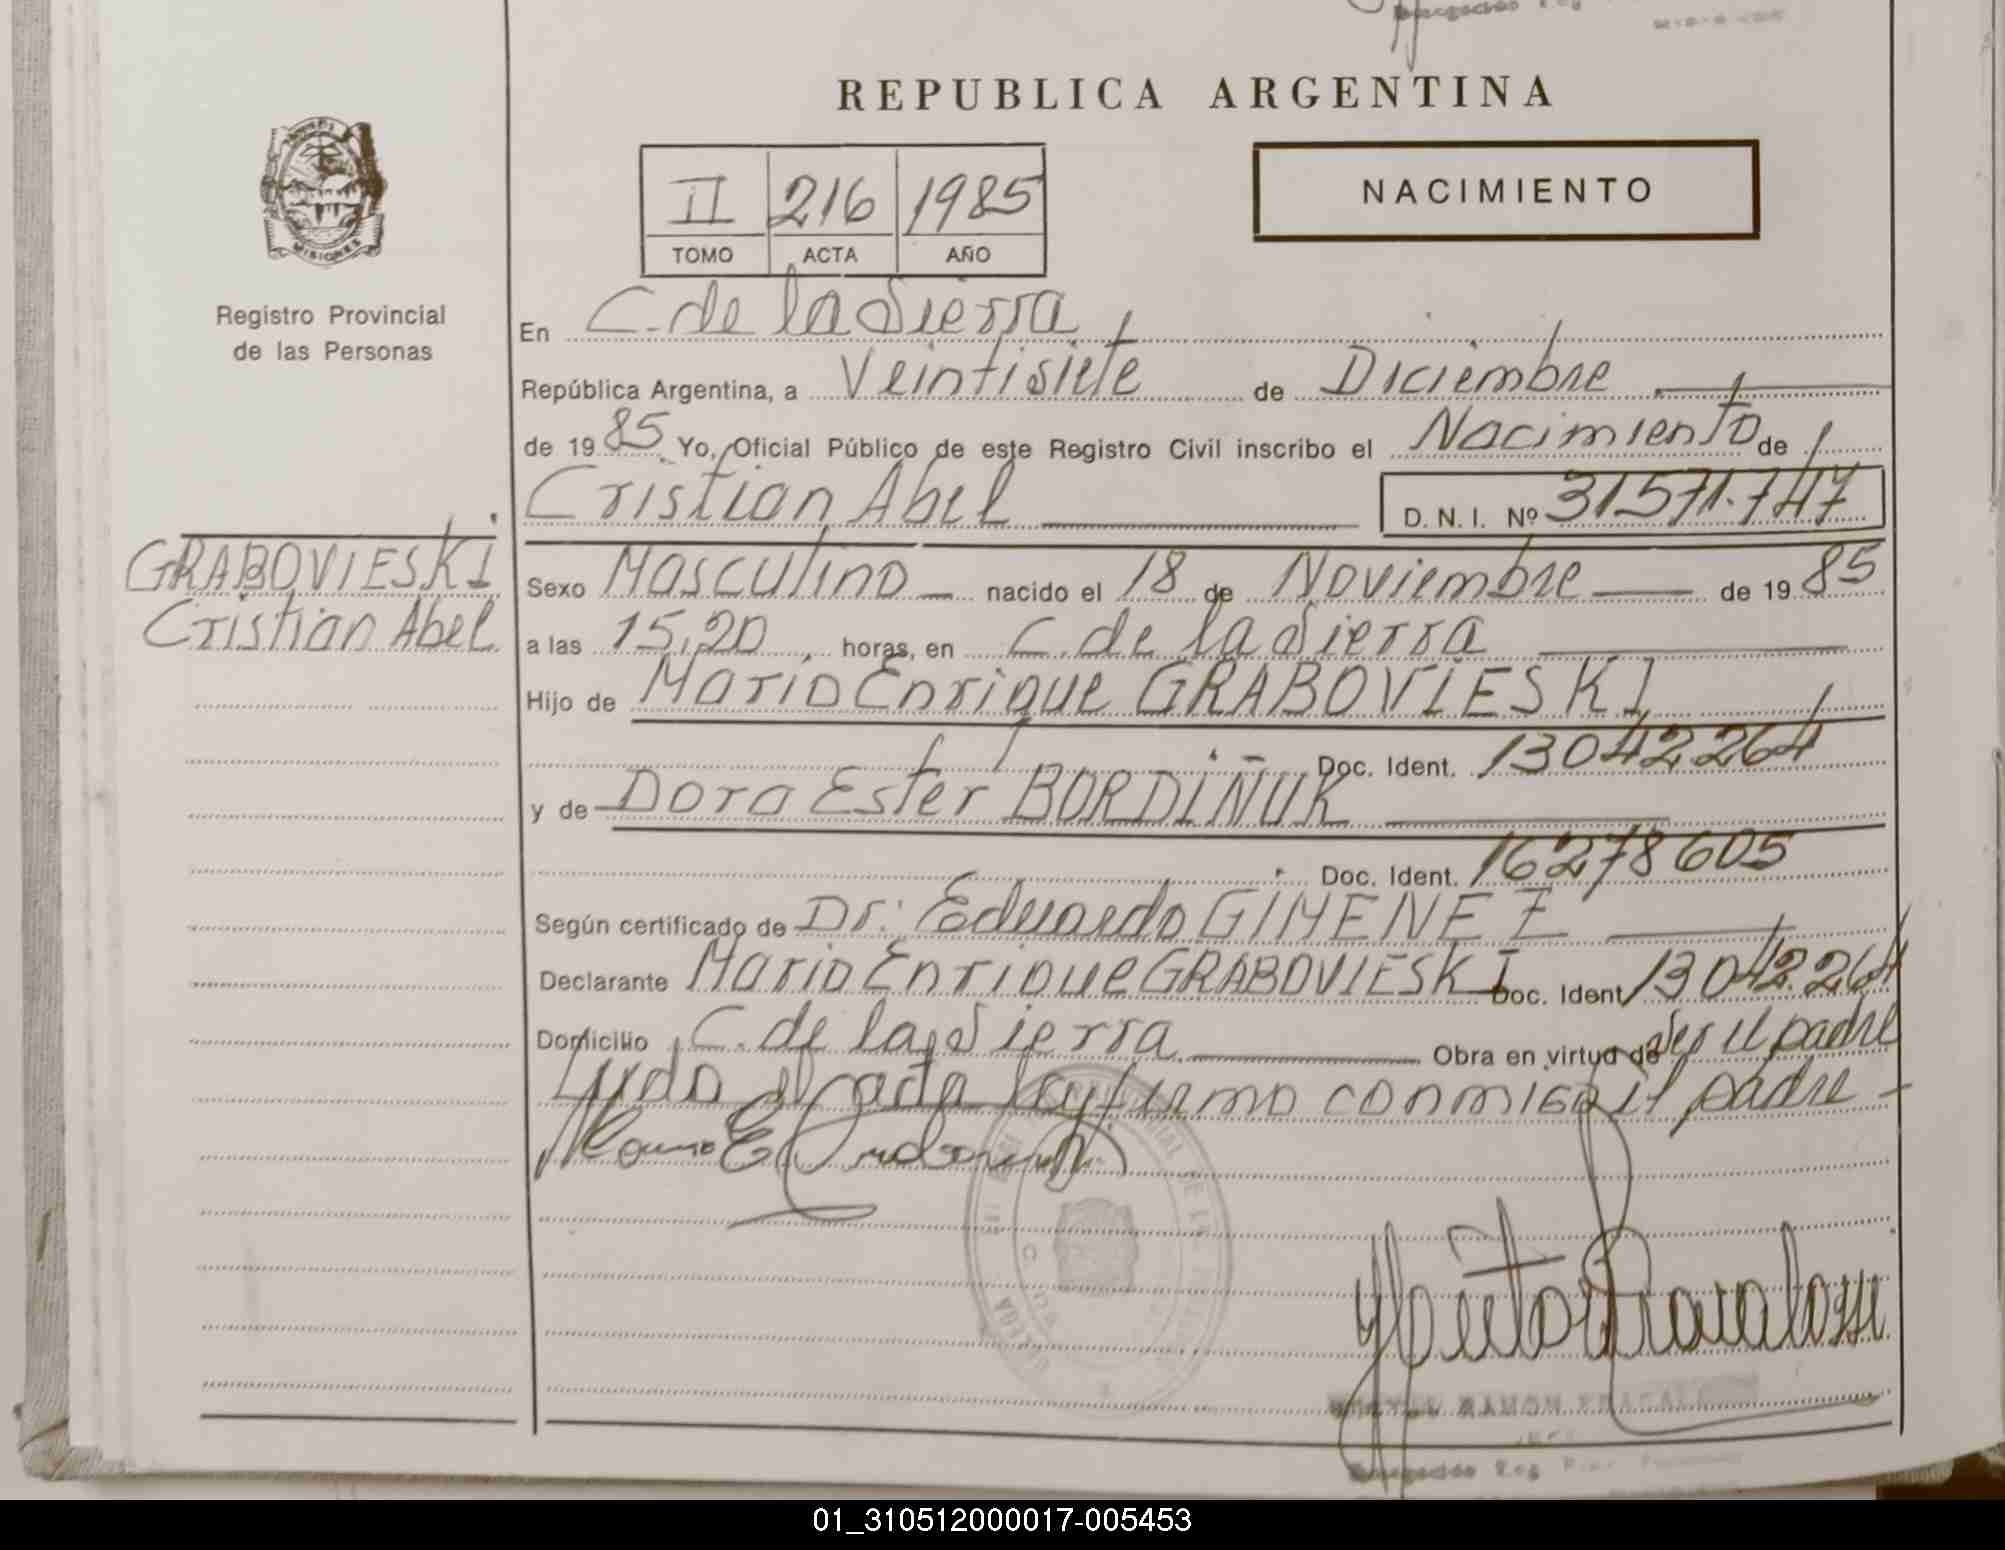 REPUBLICA ARGENTINA
NACIMIENTO
II 216 1985
TOMO ACTA AÑO
MISIONES
Registro Provincial
de las Personas
GRABOVIESKI
Cristian Abel
En C. de la Sierra
República Argentina, a Veintisiete de Diciembre
de 1985 Yo, Oficial Público de este Registro Civil inscribo el Nacimiento de
Cristian Abel D. N. I. Nº 31571.747
Sexo Masculino nacido el 18 de Noviembre de 1985
a las 15,20 horas, en C. de la Sierra
Hijo de Mario Enrique GRABOVIESKI
Doc. Ident. 13042264
y de Dora Ester BORDIÑUK
Doc. Ident. 16278605
Según certificado de Dr: Eduardo GIMENEZ
Declarante Mario Enrique GRABOVIESKI Doc. Ident 13042264
Domicilio C. de la Sierra Obra en virtud de ser el padre
Leida el acta la firma conmigo el padre -
RAMON
Delegación Reg
01_310512000017-005453